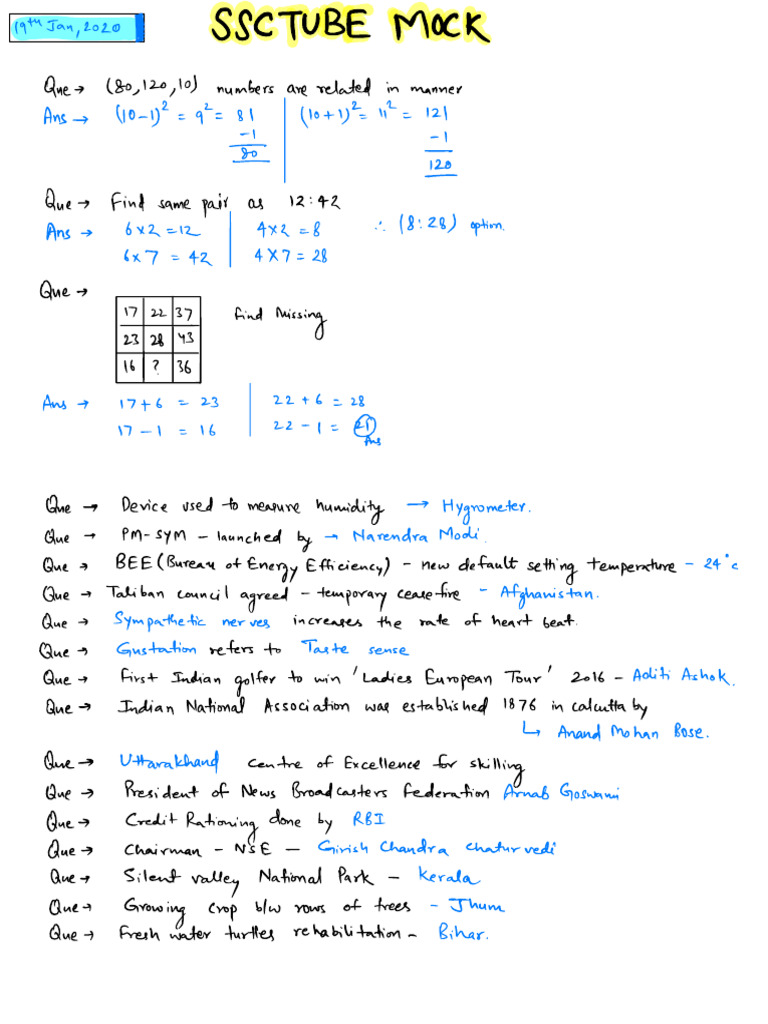 19th Jan, 2020
SSCTUBE MOCK
Que → (80, 120, 10) numbers are related in manner
Ans → (10-1)² = 9² = 81 | (10+1)² = 11² = 121
-1 | -1
80 | 120
Que → Find same pair as 12:42
Ans → 6×2 = 12 | 4×2 = 8 ∴ (8:28) option.
6×7 = 42 | 4×7 = 28
Que →
17 22 37 find Missing
23 28 43
16 ? 36
Ans → 17+6 = 23 | 22+6 = 28
17-1 = 16 | 22-1 = 21
Ans
Que → Device used to measure humidity → Hygrometer.
Que → PM-SYM - launched by → Narendra Modi.
Que → BEE (Bureau of Energy Efficiency) - new default setting temperature - 24°c
Que → Taliban council agreed - temporary cease-fire - Afghanistan.
Que → Sympathetic nerves increases the rate of heart beat.
Que → Gustation refers to Taste sense
Que → First Indian golfer to win 'Ladies European Tour' 2016 - Aditi Ashok.
Que → Indian National Association was established 1876 in calcutta by
↳ Anand Mohan Bose.
Que → Uttarakhand centre of Excellence for skilling
Que → President of News Broadcasters federation Arnab Goswami
Que → Credit Rationing done by RBI
Que → Chairman - NSE - Girish Chandra Chaturvedi
Que → Silent valley National Park - Kerala
Que → Growing crop b/w rows of trees - Jhum
Que → Fresh water turtles rehabilitation - Bihar.